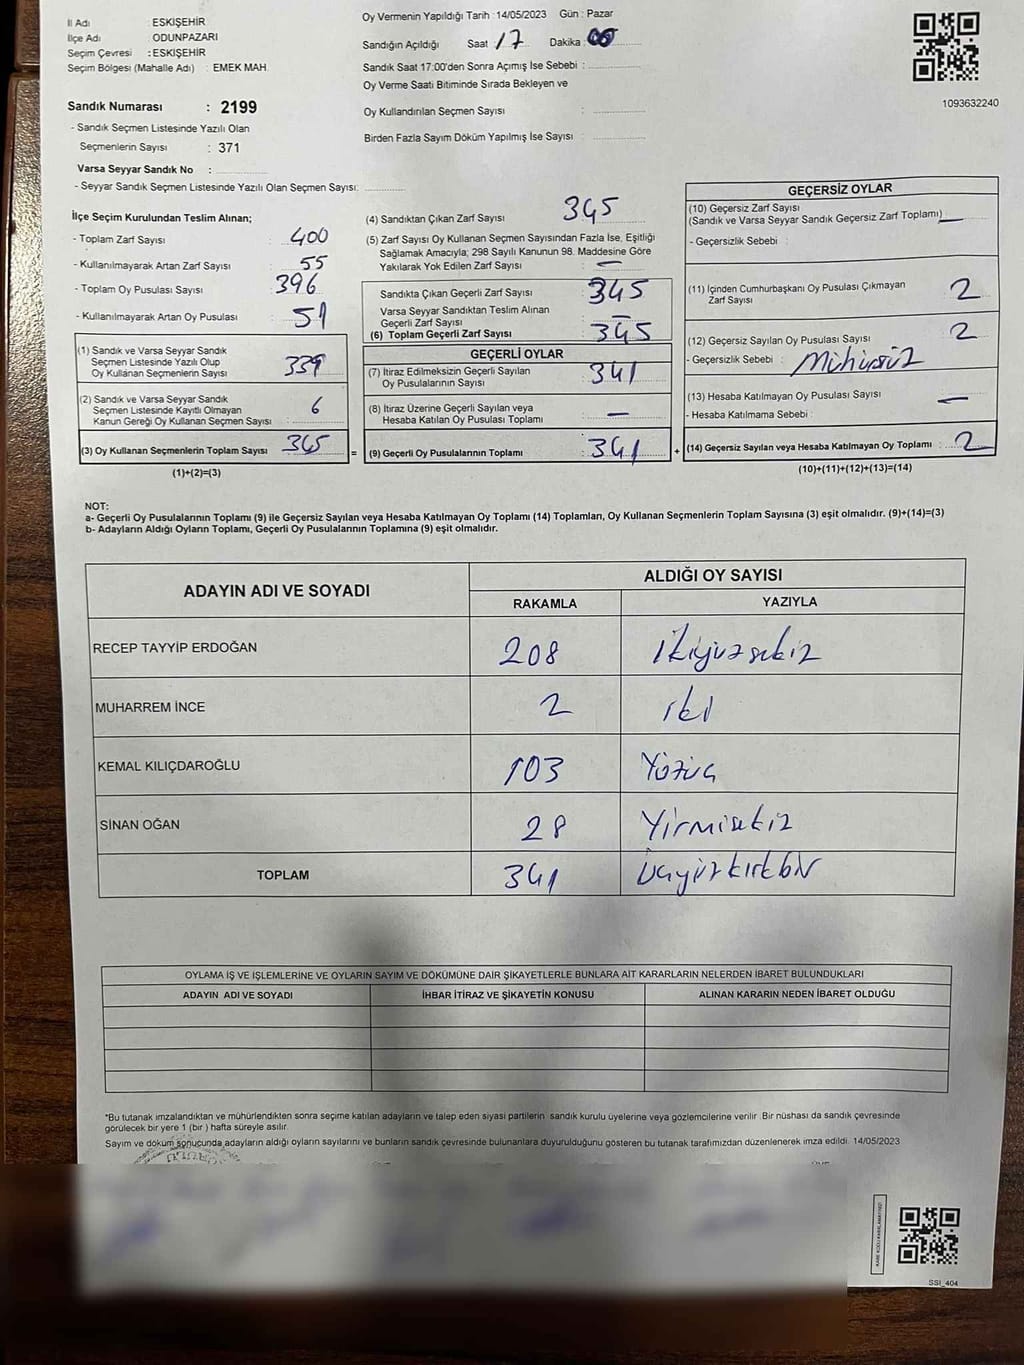 İl Adı : ESKİŞEHİR
İlçe Adı : ODUNPAZARI
Seçim Çevresi : ESKİŞEHİR
Seçim Bölgesi (Mahalle Adı) : EMEK MAH.
Sandık Numarası : 2199
- Sandık Seçmen Listesinde Yazılı Olan
Seçmenlerin Sayısı : 371
Varsa Seyyar Sandık No :
- Seyyar Sandık Seçmen Listesinde Yazılı Olan Seçmen Sayısı:
Oy Vermenin Yapıldığı Tarih : 14/05/2023 Gün : Pazar
Sandığın Açıldığı Saat 17 Dakika 00
Sandık Saat 17:00'den Sonra Açımış İse Sebebi :
Oy Verme Saati Bitiminde Sırada Bekleyen ve
Oy Kullandırılan Seçmen Sayısı :
Birden Fazla Sayım Döküm Yapılmış İse Sayısı :
1093632240
İlçe Seçim Kurulundan Teslim Alınan;
- Toplam Zarf Sayısı : 400
- Kullanılmayarak Artan Zarf Sayısı : 55
- Toplam Oy Pusulası Sayısı : 396
- Kullanılmayarak Artan Oy Pusulası : 51
(1) Sandık ve Varsa Seyyar Sandık
Seçmen Listesinde Yazılı Olup
Oy Kullanan Seçmenlerin Sayısı : 339
(2) Sandık ve Varsa Seyyar Sandık
Seçmen Listesinde Kayıtlı Olmayan
Kanun Gereği Oy Kullanan Seçmen Sayısı : 6
(3) Oy Kullanan Seçmenlerin Toplam Sayısı : 345
(1)+(2)=(3)
(4) Sandıktan Çıkan Zarf Sayısı : 345
(5) Zarf Sayısı Oy Kullanan Seçmen Sayısından Fazla İse, Eşitliği
Sağlamak Amacıyla; 298 Sayılı Kanunun 98. Maddesine Göre
Yakılarak Yok Edilen Zarf Sayısı : —
Sandıkta Çıkan Geçerli Zarf Sayısı : 345
Varsa Seyyar Sandıktan Teslim Alınan
Geçerli Zarf Sayısı : —
(6) Toplam Geçerli Zarf Sayısı : 345
GEÇERLİ OYLAR
(7) İtiraz Edilmeksizin Geçerli Sayılan
Oy Pusulalarının Sayısı : 341
(8) İtiraz Üzerine Geçerli Sayılan veya
Hesaba Katılan Oy Pusulası Toplamı : —
= (9) Geçerli Oy Pusulalarının Toplamı : 341
GEÇERSİZ OYLAR
(10) Geçersiz Zarf Sayısı
(Sandık ve Varsa Seyyar Sandık Geçersiz Zarf Toplamı) —
- Geçersizlik Sebebi :
(11) İçinden Cumhurbaşkanı Oy Pusulası Çıkmayan
Zarf Sayısı : 2
(12) Geçersiz Sayılan Oy Pusulası Sayısı : 2
- Geçersizlik Sebebi : Mühürsüz
(13) Hesaba Katılmayan Oy Pusulası Sayısı : —
- Hesaba Katılmama Sebebi :
+ (14) Geçersiz Sayılan veya Hesaba Katılmayan Oy Toplamı : 2
(10)+(11)+(12)+(13)=(14)
NOT:
a- Geçerli Oy Pusulalarının Toplamı (9) ile Geçersiz Sayılan veya Hesaba Katılmayan Oy Toplamı (14) Toplamları, Oy Kullanan Seçmenlerin Toplam Sayısına (3) eşit olmalıdır. (9)+(14)=(3)
b- Adayların Aldığı Oyların Toplamı, Geçerli Oy Pusulalarının Toplamına (9) eşit olmalıdır.
ADAYIN ADI VE SOYADI ALDIĞI OY SAYISI
RAKAMLA YAZIYLA
RECEP TAYYİP ERDOĞAN 208 ikiyüzsekiz
MUHARREM İNCE 2 iki
KEMAL KILIÇDAROĞLU 103 Yüzüç
SİNAN OĞAN 28 Yirmisekiz
TOPLAM 341 üçyüzkırkbir
OYLAMA İŞ VE İŞLEMLERİNE VE OYLARIN SAYIM VE DÖKÜMÜNE DAİR ŞİKAYETLERLE BUNLARA AİT KARARLARIN NELERDEN İBARET BULUNDUKLARI
ADAYIN ADI VE SOYADI İHBAR İTİRAZ VE ŞİKAYETİN KONUSU ALINAN KARARIN NEDEN İBARET OLDUĞU
*Bu tutanak imzalandıktan ve mühürlendikten sonra seçime katılan adayların ve talep eden siyasi partilerin sandık kurulu üyelerine veya gözlemcilerine verilir. Bir nüshası da sandık çevresinde
görülecek bir yere 1 (bir) hafta süreyle asılır.
Sayım ve döküm sonucunda adayların aldığı oyların sayılarını ve bunların sandık çevresinde bulunanlara duyurulduğunu gösteren bu tutanak tarafımızdan düzenlenerek imza edildi. 14/05/2023
SSI_404